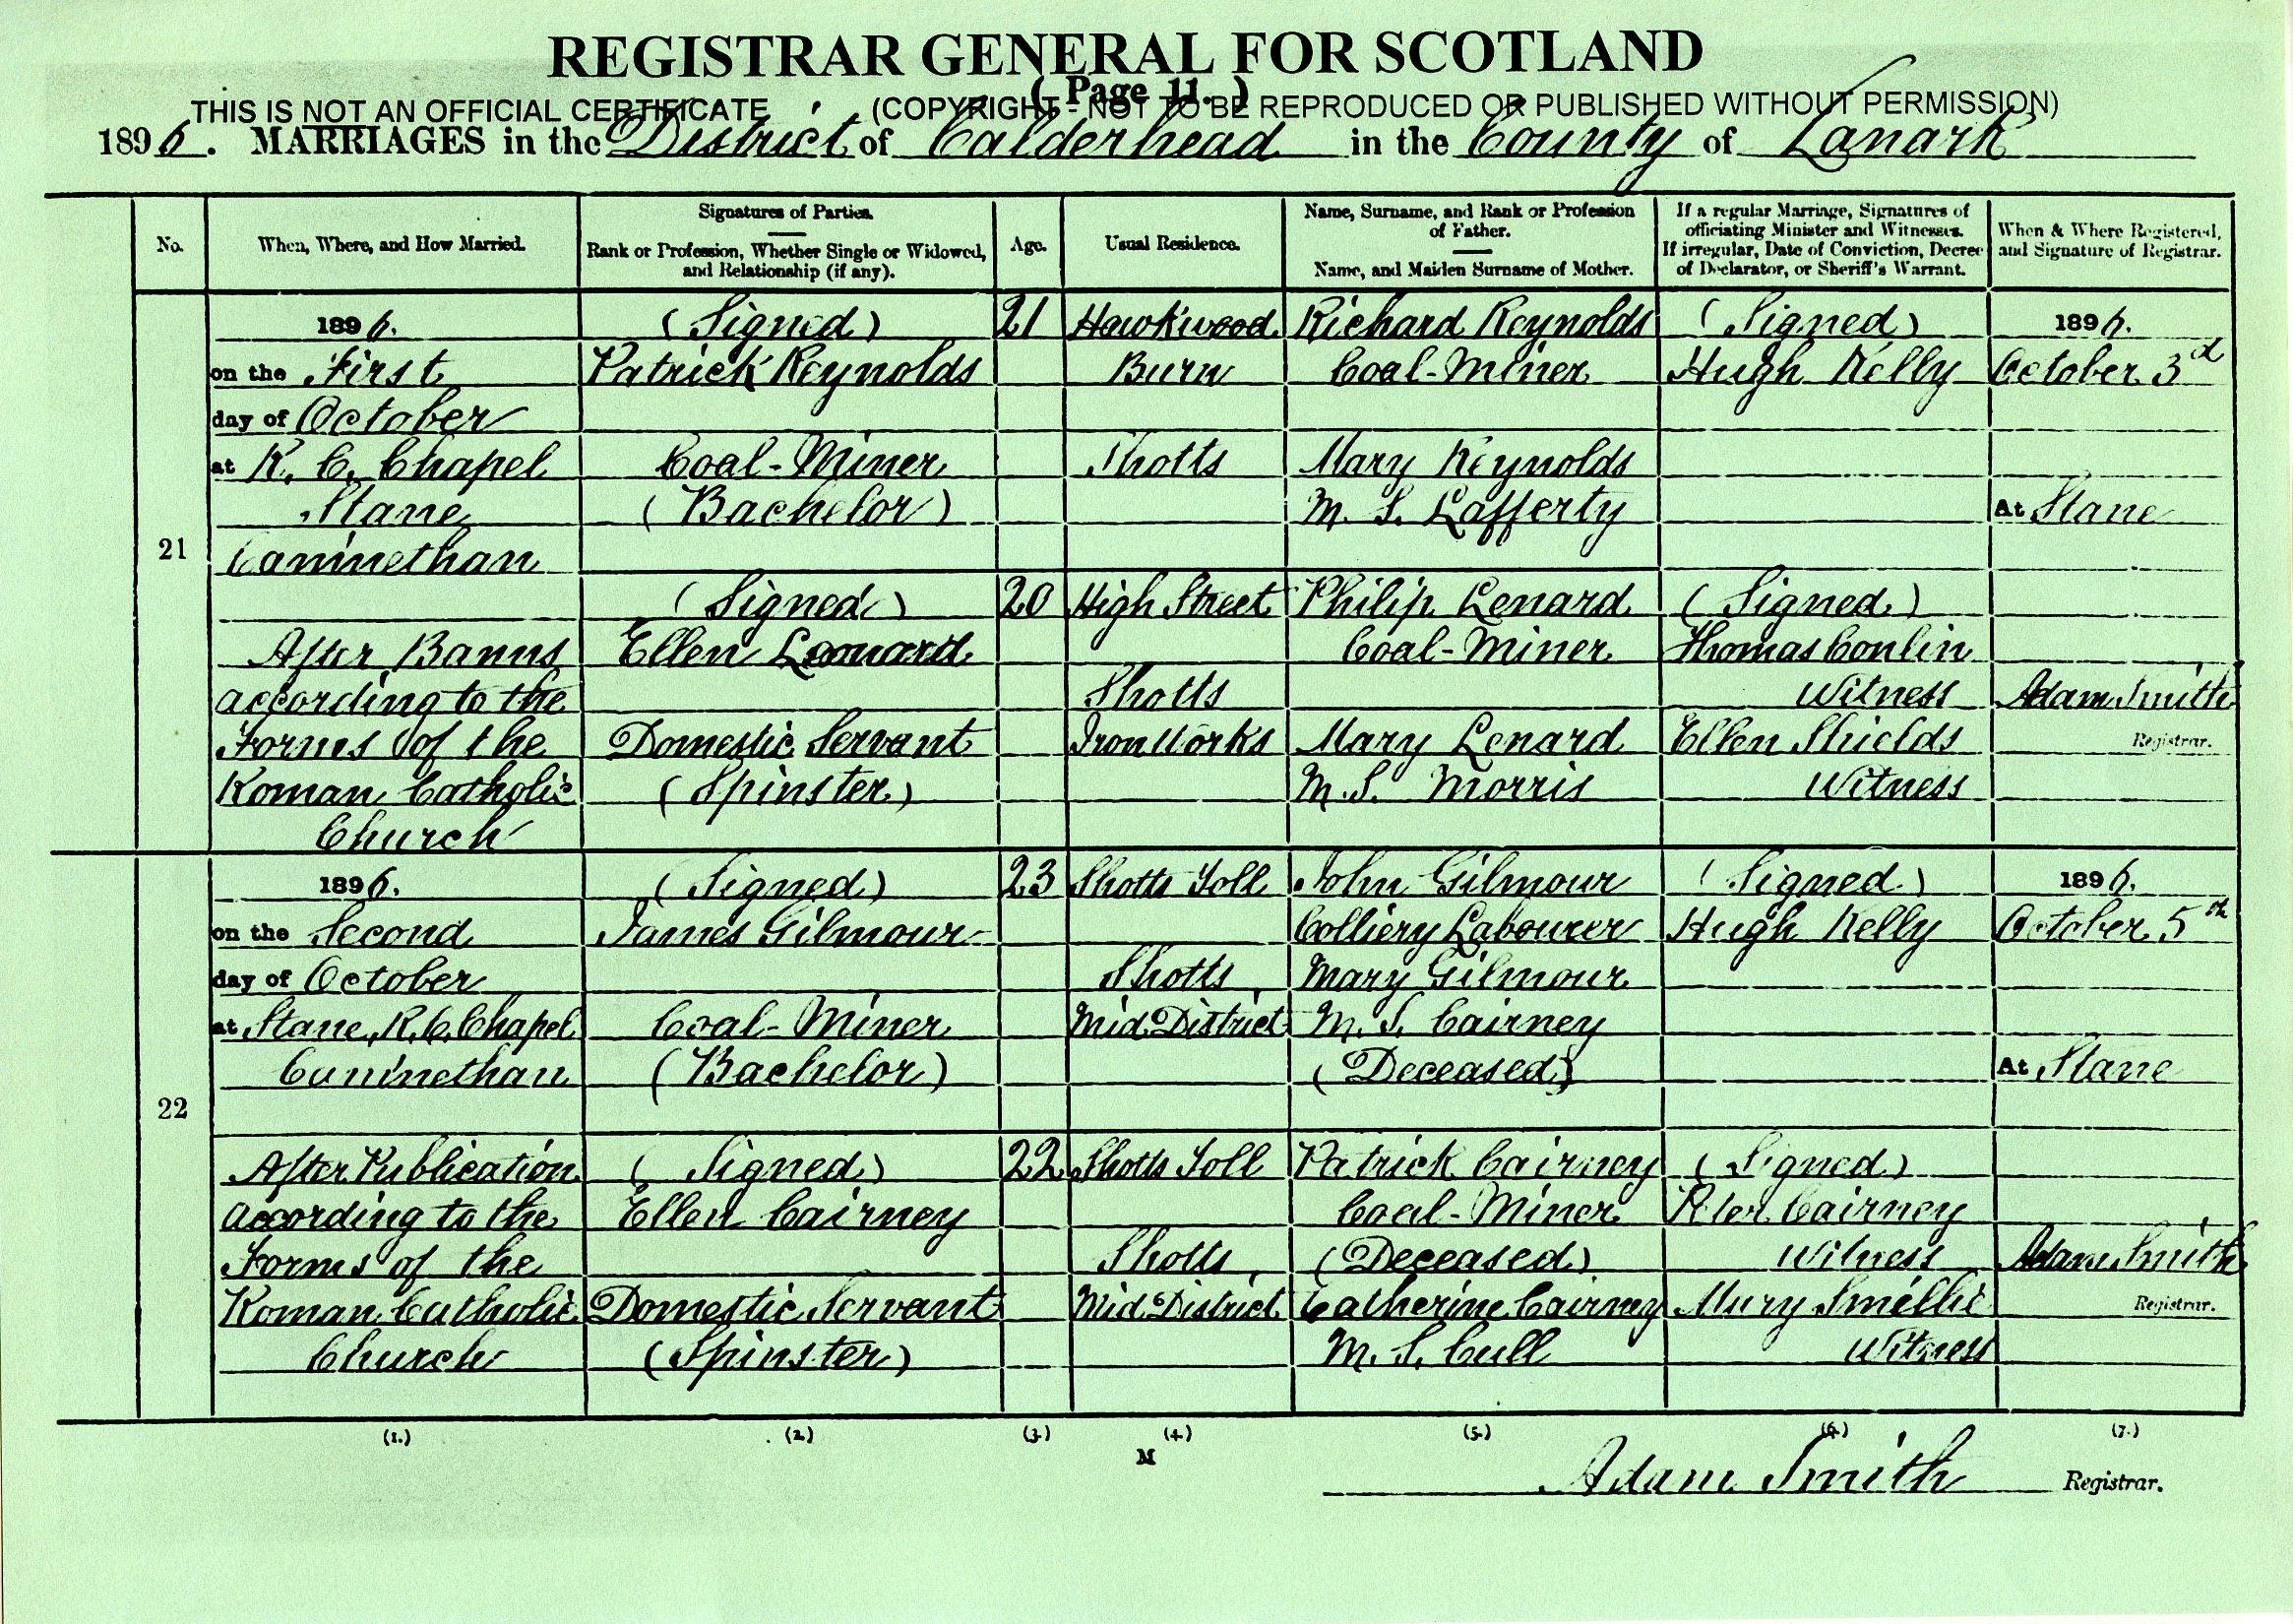 REGISTRAR GENERAL FOR SCOTLAND
( Page 11. )
THIS IS NOT AN OFFICIAL CERTIFICATE (COPYRIGHT - NOT TO BE REPRODUCED OR PUBLISHED WITHOUT PERMISSION)
1896. MARRIAGES in the District of Calderhead in the County of Lanark
No.
When, Where, and How Married.
Signatures of Parties.
Rank or Profession, Whether Single or Widowed,
and Relationship (if any).
Age.
Usual Residence.
Name, Surname, and Rank or Profession
of Father.
Name, and Maiden Surname of Mother.
If a regular Marriage, Signatures of
officiating Minister and Witnesses.
If irregular, Date of Conviction, Decree
of Declarator, or Sheriff's Warrant.
When & Where Registered,
and Signature of Registrar.
21
1896.
on the First
day of October
at R. C. Chapel
Stane
Cambnethan
After Banns
according to the
Forms of the
Roman Catholic
Church
(Signed)
Patrick Reynolds
Coal-Miner
(Bachelor)
(Signed)
Ellen Leonard
Domestic Servant
(Spinster)
21
20
Hawkwood
Burn
Shotts
High Street
Shotts
Iron Works
Richard Reynolds
Coal-Miner
Mary Reynolds
M. S. Lafferty
Philip Lenard
Coal-Miner
Mary Lenard
M. S. Morris
(Signed)
Hugh Kelly
(Signed)
Thomas Conlin
Witness
Ellen Shields
Witness
1896.
October 3d
At Stane
Adam Smith
Registrar.
22
1896.
on the Second
day of October
at Stane, R. C. Chapel
Cambnethan
After Publication
according to the
Forms of the
Roman Catholic
Church
(Signed)
James Gilmour
Coal-Miner
(Bachelor)
(Signed)
Ellen Cairney
Domestic Servant
(Spinster)
23
22
Shotts Toll
Shotts,
Mid District
Shotts Toll
Shotts,
Mid District
John Gilmour
Colliery Labourer
Mary Gilmour
M. S. Cairney
(Deceased)
Patrick Cairney
Coal-Miner
(Deceased)
Catherine Cairney
M. S. Cull
(Signed)
Hugh Kelly
(Signed)
Peter Cairney
Witness
Mary Smellie
Witness
1896.
October 5th
At Stane
Adam Smith
Registrar.
(1.) (2.) (3.) (4.) (5.) (6.) (7.)
M
Adam Smith Registrar.